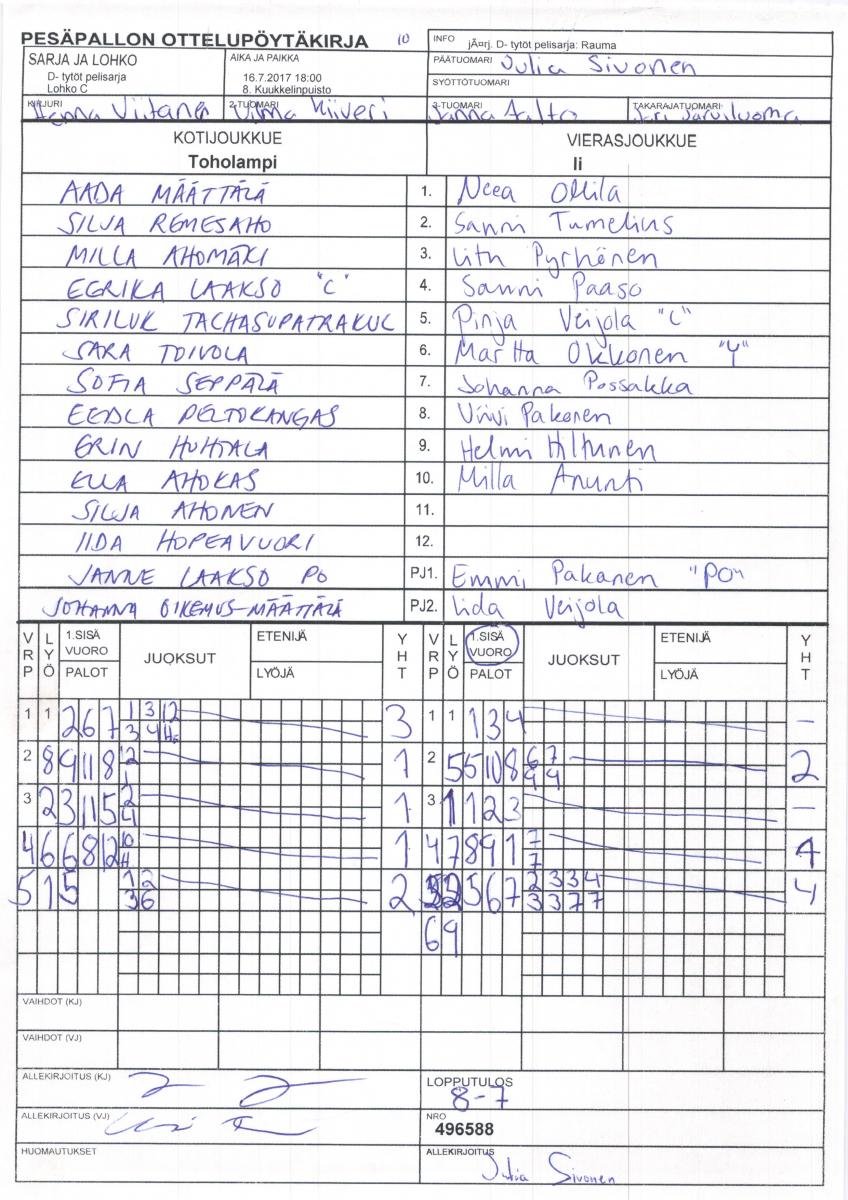 PESÄPALLON OTTELUPÖYTÄKIRJA 10
INFO jÃ¤rj. D- tytöt pelisarja: Rauma
SARJA JA LOHKO
D- tytöt pelisarja
Lohko C
AIKA JA PAIKKA
16.7.2017 18:00
8. Kuukkelinpuisto
PÄÄTUOMARI Julia Sivonen
SYÖTTÖTUOMARI
KIRJURI Hanna Viitanen 2-TUOMARI Vilma Kiiveri 3-TUOMARI Janna Aalto TAKARAJATUOMARI Jari Sarviluoma
KOTIJOUKKUE VIERASJOUKKUE
Toholampi Ii
AADA MÄÄTTÄLÄ 1. Neea Ollila
SILJA REMESAHO 2. Sanni Tumelius
MILLA AHOMÄKI 3. Pyrhönen
EERIKA LAAKSO "C" 4. Sanni Paaso
SIRILUK TACHASUPATRAKUL 5. Pinja Veijola "C"
SARA TOIVOLA 6. Martta Okkonen "Y"
SOFIA SEPPÄLÄ 7. Johanna Possakka
EEDLA PELTOKANGAS 8. Viivi Pakonen
ERIN HUHTALA 9. Helmi Hiltunen
ELLA AHOKAS 10. Milla Anunti
SILJA AHONEN 11.
IIDA HOPEAVUORI 12.
JANNE LAAKSO PO PJ1. Emmi Pakanen "PO"
JOHANNA OIKEMUS-MÄÄTTÄLÄ PJ2. Iida Veijola
VRP LYÖ 1.SISÄ VUORO PALOT JUOKSUT ETENIJÄ LYÖJÄ YHT VRP LYÖ 1.SISÄ VUORO PALOT JUOKSUT ETENIJÄ LYÖJÄ YHT
1 1 2 6 7 1 3 12 3 1 1 1 3 4 –
3 4
2 8 9 11 8 2 1 2 5 5 10 8 6 7 2
1 9 9
3 2 3 11 5 2 1 3 1 1 2 3 –
4
4 6 6 8 12 10 1 4 7 8 9 1 7 1
H 7
5 1 5 1 2 2 5 2 5 6 7 2 3 3 4 4
3 6 3 3 7 7
6 9
VAIHDOT (KJ)
VAIHDOT (VJ)
ALLEKIRJOITUS (KJ) LOPPUTULOS
8-7
ALLEKIRJOITUS (VJ) NRO
496588
HUOMAUTUKSET ALLEKIRJOITUS
Julia Sivonen